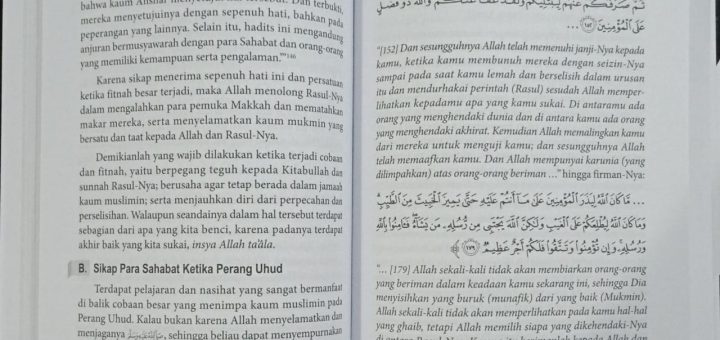 bahwa kaum Anshar
mereka menyetujuinya dengan sepenuh hati, bahkan pada
peperangan yang lainnya. Selain itu, hadits ini mengandung
anjuran bermusyawarah dengan para Sahabat dan orang-orang
yang memiliki kemampuan serta pengalaman.”¹⁴⁶
Karena sikap menerima sepenuh hati ini dan persatuan
ketika fitnah besar terjadi, maka Allah menolong Rasul-Nya
dalam mengalahkan para pemuka Makkah dan mematahkan
makar mereka, serta menyelamatkan kaum mukmin yang
bersatu dan taat kepada Allah dan Rasul-Nya.
Demikianlah yang wajib dilakukan ketika terjadi cobaan
dan fitnah, yaitu berpegang teguh kepada Kitabullah dan
sunnah Rasul-Nya; berusaha agar tetap berada dalam jamaah
kaum muslimin; serta menjauhkan diri dari perpecahan dan
perselisihan. Walaupun seandainya dalam hal tersebut terdapat
sebagian dari apa yang kita benci, karena padanya terdapat
akhir baik yang kita sukai, insya Allah ta'āla.
B. Sikap Para Sahabat Ketika Perang Uhud
Terdapat pelajaran dan nasihat yang sangat bermanfaat
di balik cobaan besar yang menimpa kaum muslimin pada
Perang Uhud. Kalau bukan karena Allah menyelamatkan dan
menjaganya ﷺ, sehingga beliau dapat menyempurnakan
ثُمَّ صَرَفَكُمْ عَنْهُمْ لِيَبْتَلِيَكُمْ وَلَقَدْ عَفَا عَنْكُمْ وَاللَّهُ ذُو فَضْلٍ
عَلَى الْمُؤْمِنِينَ ﴿١٥٢﴾ ...
"[152] Dan sesungguhnya Allah telah memenuhi janji-Nya kepada
kamu, ketika kamu membunuh mereka dengan seizin-Nya
sampai pada saat kamu lemah dan berselisih dalam urusan
itu dan mendurhakai perintah (Rasul) sesudah Allah memper-
lihatkan kepadamu apa yang kamu sukai. Di antaramu ada
orang yang menghendaki dunia dan di antara kamu ada orang
yang menghendaki akhirat. Kemudian Allah memalingkan kamu
dari mereka untuk menguji kamu; dan sesungguhnya Allah
telah memaafkan kamu. Dan Allah mempunyai karunia (yang
dilimpahkan) atas orang-orang beriman ..." hingga firman-Nya:
... مَّا كَانَ اللَّهُ لِيَذَرَ الْمُؤْمِنِينَ عَلَىٰ مَا أَنتُمْ عَلَيْهِ حَتَّىٰ يَمِيزَ الْخَبِيثَ مِنَ الطَّيِّبِ
وَمَا كَانَ اللَّهُ لِيُطْلِعَكُمْ عَلَى الْغَيْبِ وَلَٰكِنَّ اللَّهَ يَجْتَبِي مِن رُّسُلِهِ مَن يَشَاءُ فَآمِنُوا بِاللَّهِ
وَرُسُلِهِ وَإِن تُؤْمِنُوا وَتَتَّقُوا فَلَكُمْ أَجْرٌ عَظِيمٌ ﴿١٧٩﴾
"... [179] Allah sekali-kali tidak akan membiarkan orang-orang
yang beriman dalam keadaan kamu sekarang ini, sehingga Dia
menyisihkan yang buruk (munafik) dari yang baik (Mukmin).
Allah sekali-kali tidak akan memperlihatkan pada kamu hal-hal
yang ghaib, tetapi Allah memilih siapa yang dikehendaki-Nya